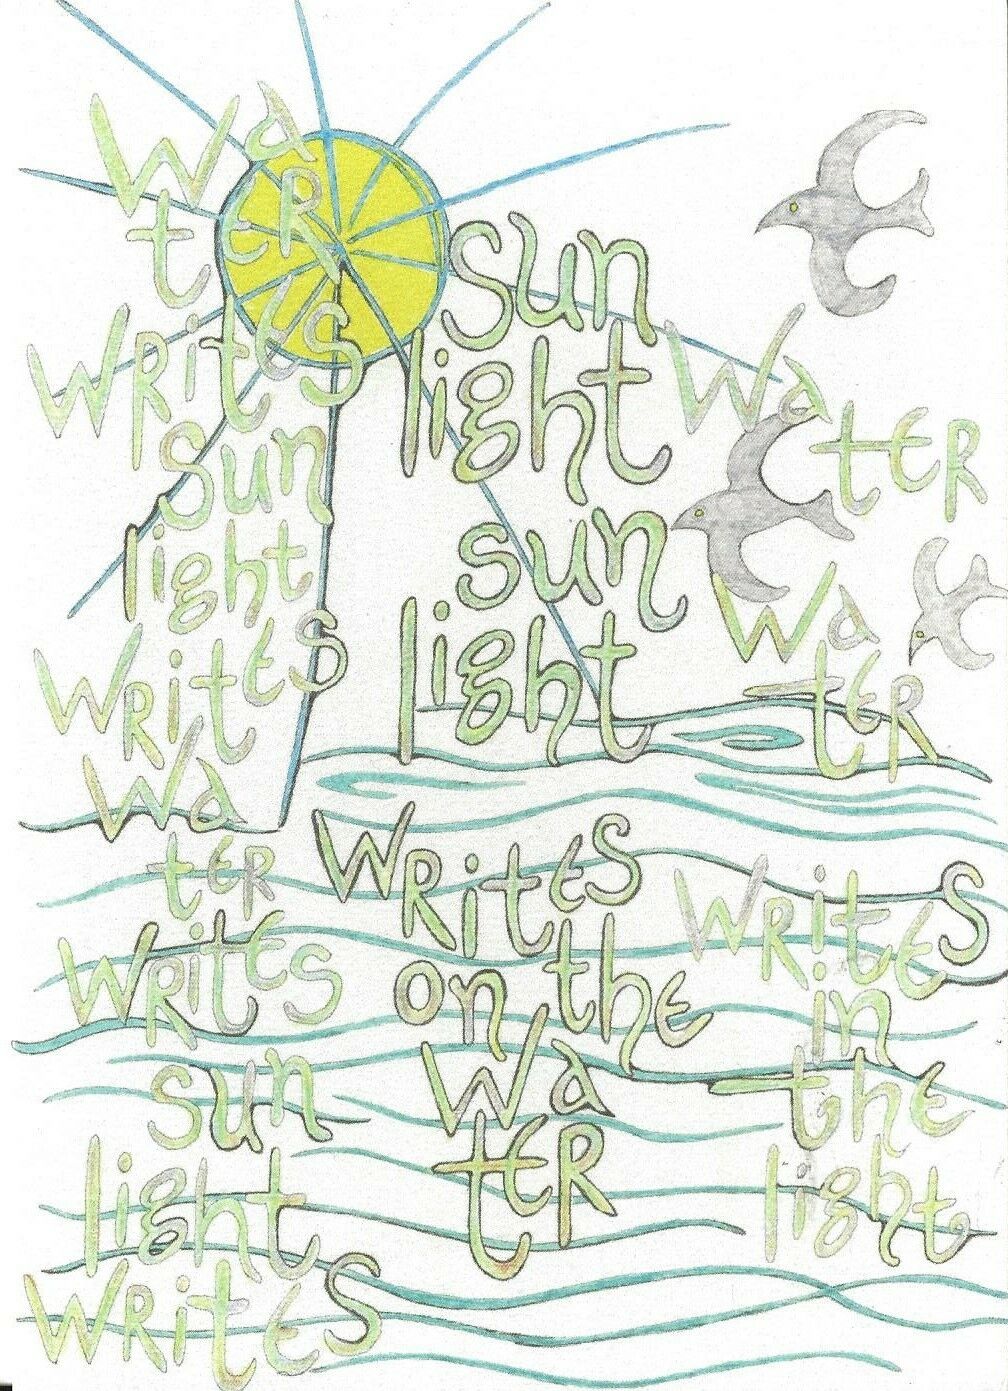 Wa
teR
WRites
sun
light
WRites
Wa
teR
WRites
sun
light
WRites
sun
light
sun
light
WRites
on the
Wa
teR
Wa
teR
Wa
teR
WRites
in
the
light